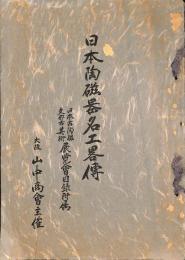 日本陶磁器名工畧傳
日本古陶磁
支那古美術
展覧會目録附偁
大阪 山中商會主催